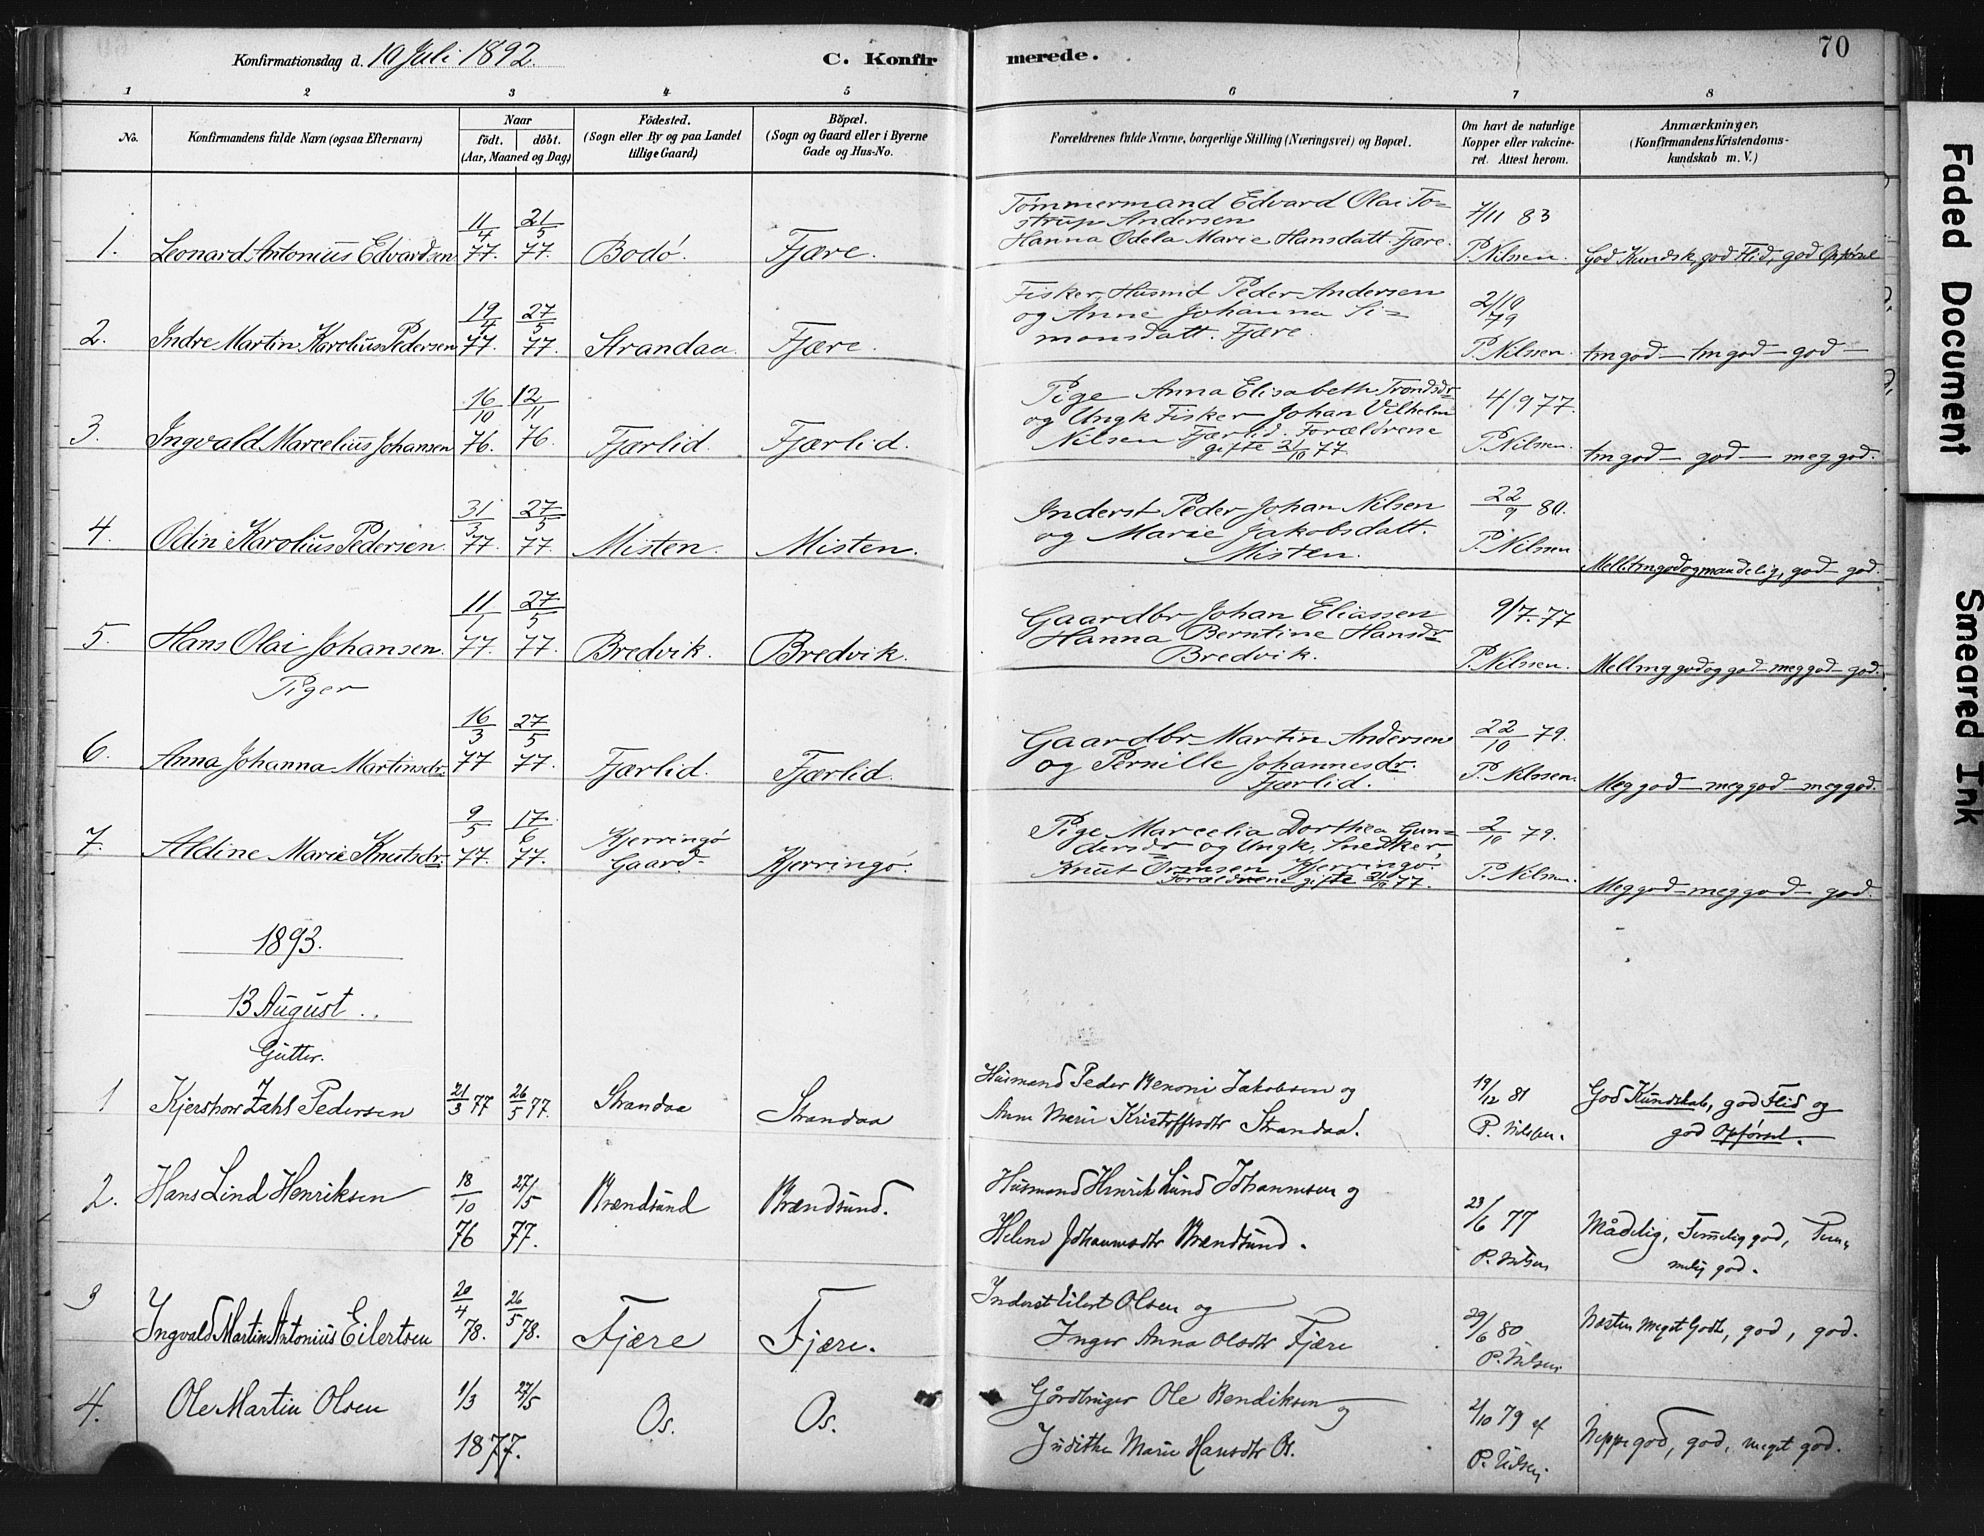 Konfirmationsdag d. 10 Juli 1892. C. Konfirmerede. 70
1 2 3 4 5 6 7 8
No. Konfirmandens fulde Navn (ogsaa Efternavn) Naar født. døbt. (Aar, Maaned og Dag) Fødested. (Sogn eller By og paa Landet tillige Gaard) Bopæl. (Sogn og Gaard eller i Byerne Gade og Hus-No. Forældrenes fulde Navne, borgerlige Stilling (Næringsvei) og Bopæl. Om havt de naturlige Kopper eller vakcineret. Attest herom. Anmærkninger, (Konfirmandens Kristendomskundskab m. V.)
1. Leonard Antonius Edvardsen 11/4 77. 21/5 77. Bodø. Fjære. Tømmermand Edvard Olai To=
strup Andersen
Hanna Odela Marie Hansdatt. Fjære. 7/11 83 P. Nilssen. God Kundsk, god Flid, god Opførsel
2. Indre Martin Karolius Pedersen 19/4 77. 27/5 77. Strandaa. Fjære. Fisker, Husmd Peder Andersen
og Anne Johanna Si=
monsdatt. Fjære. 2/10 79 P. Nilssen. tm god — tm god — god —
3. Ingvald Marcelius Johansen 16/10 76. 12/11 76. Fjærlid. Fjærlid. Pige Anna Elisabeth Trondsdr
og Ungk Fisker Johan Vilhelm
Nilsen Fjærlid. Forældrene
gifte 21/10 77. 4/9 77. P. Nilssen. tm god — god — meg god.
4. Odin Karolius Pedersen. 31/3 77. 27/5 77. Misten. Misten. Inderst Peder Johan Nilsen
og Marie Jakobsdatt.
Misten. 22/9 80. P. Nilssen Mell tm god og maadelig, god — god.
5. Hans Olai Johansen. 11/1 77. 27/5 77. Bredvik. Bredvik. Gaardbr Johan Eliassen
Hanna Berntine Hansdr
Bredvik. 9/7. 77 P. Nilssen. Mell mg god og god — meg god — god.
Piger
6. Anna Johanna Martinsdr. 16/3 77 27/5 77. Fjærlid. Fjærlid. Gaardbr Martin Andersen
og Pernille Johannesdr.
Fjærlid. 22/10 79. P. Nilssen. Meg god — meg god — meg god.
7. Aldine Marie Knutsdr 9/5 77. 17/6 77. Kjerringø Gaard. Kjerringø. Pige Marcelia Dorthea Gun=
dersdr og Ungk, Snedker
Knut Ørnsen Kjerringø.
Forældrene gifte 21/10 77. 2/10 79. P. Nilssen. Meg god — meg god — god.
1893.
13 August.
Gutter.
1 Kjerschow Zahl Pedersen 21/3 77 26/5 77. Strandaa Strandaa Husmand Peder Benoni Jakobsen og
Ane Marie Kristoffersdtr Strandaa. 19/12 81 P. Nilssen. God Kundskab, god Flid og
god Opførsel.
2. Hans Lind Henriksen 18/10 76 27/5 77. Brændsund Brændsund. Husmand Henrik Lund Johannesen og
Helene Johannesdtr Brændsund. 23/6 77 P. Nilsen Mådelig, Temmelig god, Tem=
melig god.
3 Ingvald Martin Antonius Eilertsen 20/4 78. 26/5 78. Fjære Fjære. Inderst Eilert Olsen og
Inger Anna Olsdtr Fjære 29/6 80 P. Nilsen Næsten meget Godt, god, god.
4. Ole Martin Olsen 1/3 27/5 1877. Os. Os. Gårdbruger Ole Bendiksen og
Judithe Marie Hansdtr Os. 2/10 79 af P. Nilsen Neppe god, god, meget god.
Faded Document
Smeared Ink